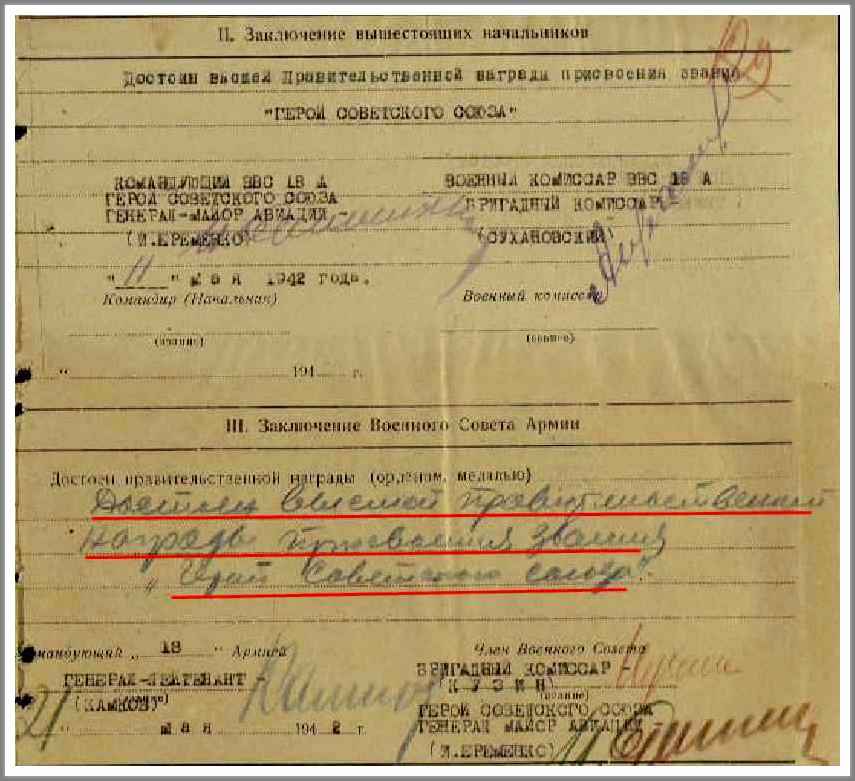 129
II. Заключение вышестоящих начальников
Достоин высшей Правительственной награды присвоения звания
"ГЕРОЙ СОВЕТСКОГО СОЮЗА"
КОМАНДУЮЩИЙ ВВС 18 А
ГЕРОЙ СОВЕТСКОГО СОЮЗА
ГЕНЕРАЛ-МАЙОР АВИАЦИИ -
(И.ЕРЕМЕНКО)
ВОЕННЫЙ КОМИССАР ВВС 18 А
БРИГАДНЫЙ КОМИССАР
(СУХАНОВСКИЙ)
"11" мая 1942 года.
Командир (Начальник)
Военный комиссар
(звание)
(звание)
" 194 г.
III. Заключение Военного Совета Армии
Достоен правительственной награды (орденом, медалью)
Достоин высшей правительственной
награды присвоения звания
"Герой Советского Союза".
Командующий "18" Армией
Член Военного Совета
ГЕНЕРАЛ-ЛЕЙТЕНАНТ -
(КАМКОВ)
БРИГАДНЫЙ КОМИССАР -
(КУЗИН)
(звание)
ГЕРОЙ СОВЕТСКОГО СОЮЗА
ГЕНЕРАЛ МАЙОР АВИАЦИИ -
(И.ЕРЕМЕНКО)
21 " мая 1942 г.